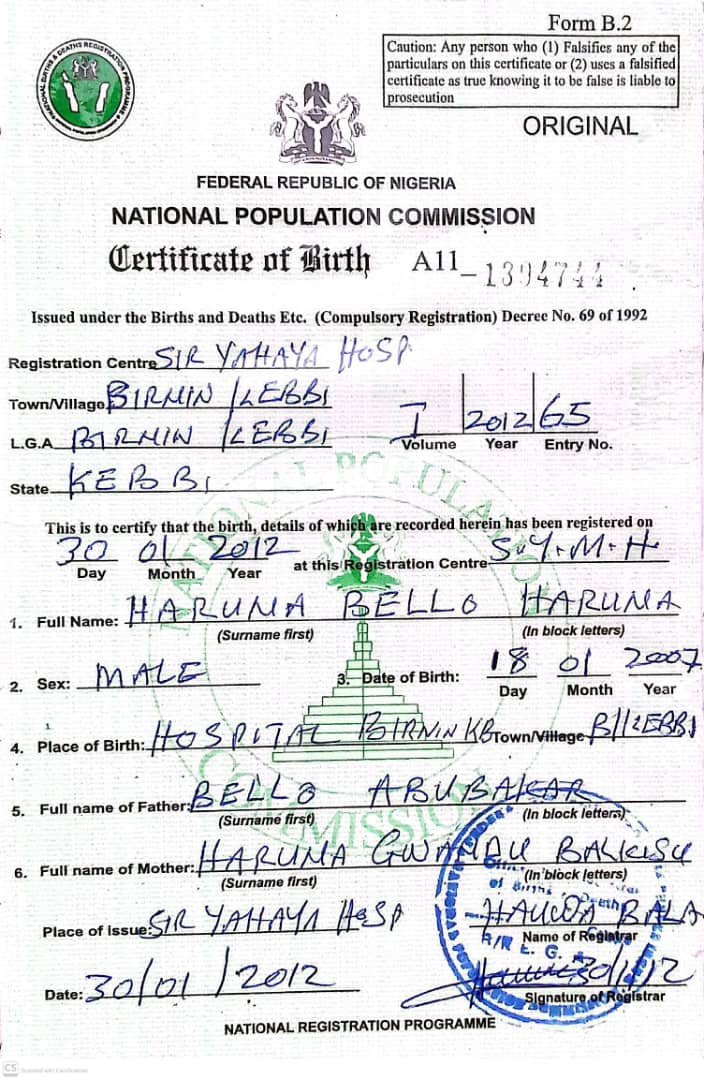 Form B.2
Caution: Any person who (1) Falsifies any of the
particulars on this certificate or (2) uses a falsified
certificate as true knowing it to be false is liable to
prosecution
ORIGINAL
FEDERAL REPUBLIC OF NIGERIA
NATIONAL POPULATION COMMISSION
Certificate of Birth A11 – 1394744
Issued under the Births and Deaths Etc. (Compulsory Registration) Decree No. 69 of 1992
Registration Centre SIR YAHAYA HOSP
Town/Village BIRNIN KEBBI
L.G.A BIRNIN KEBBI
I 2012 65
Volume Year Entry No.
State KEBBI
NATIONAL POPULATION COMMISSION
This is to certify that the birth, details of which are recorded herein has been registered on
30 01 2012 at this Registration Centre S.Y.M.H
Day Month Year
1. Full Name: HARUNA BELLO HARUNA
(Surname first) (In block letters)
2. Sex: MALE 3. Date of Birth: 18 01 2007
Day Month Year
4. Place of Birth: HOSPITAL BIRNIN KB Town/Village B/KEBBI
5. Full name of Father: BELLO ABUBAKAR
(Surname first) (In block letters)
6. Full name of Mother: HARUNA GWANDU BALKISU
(Surname first) (In block letters)
Place of Issue: SIR YAHAYA HOSP HAUWA BALA
Name of Registrar
Date: 30/01/2012
Signature of Registrar
NATIONAL REGISTRATION PROGRAMME
CS Scanned with CamScanner